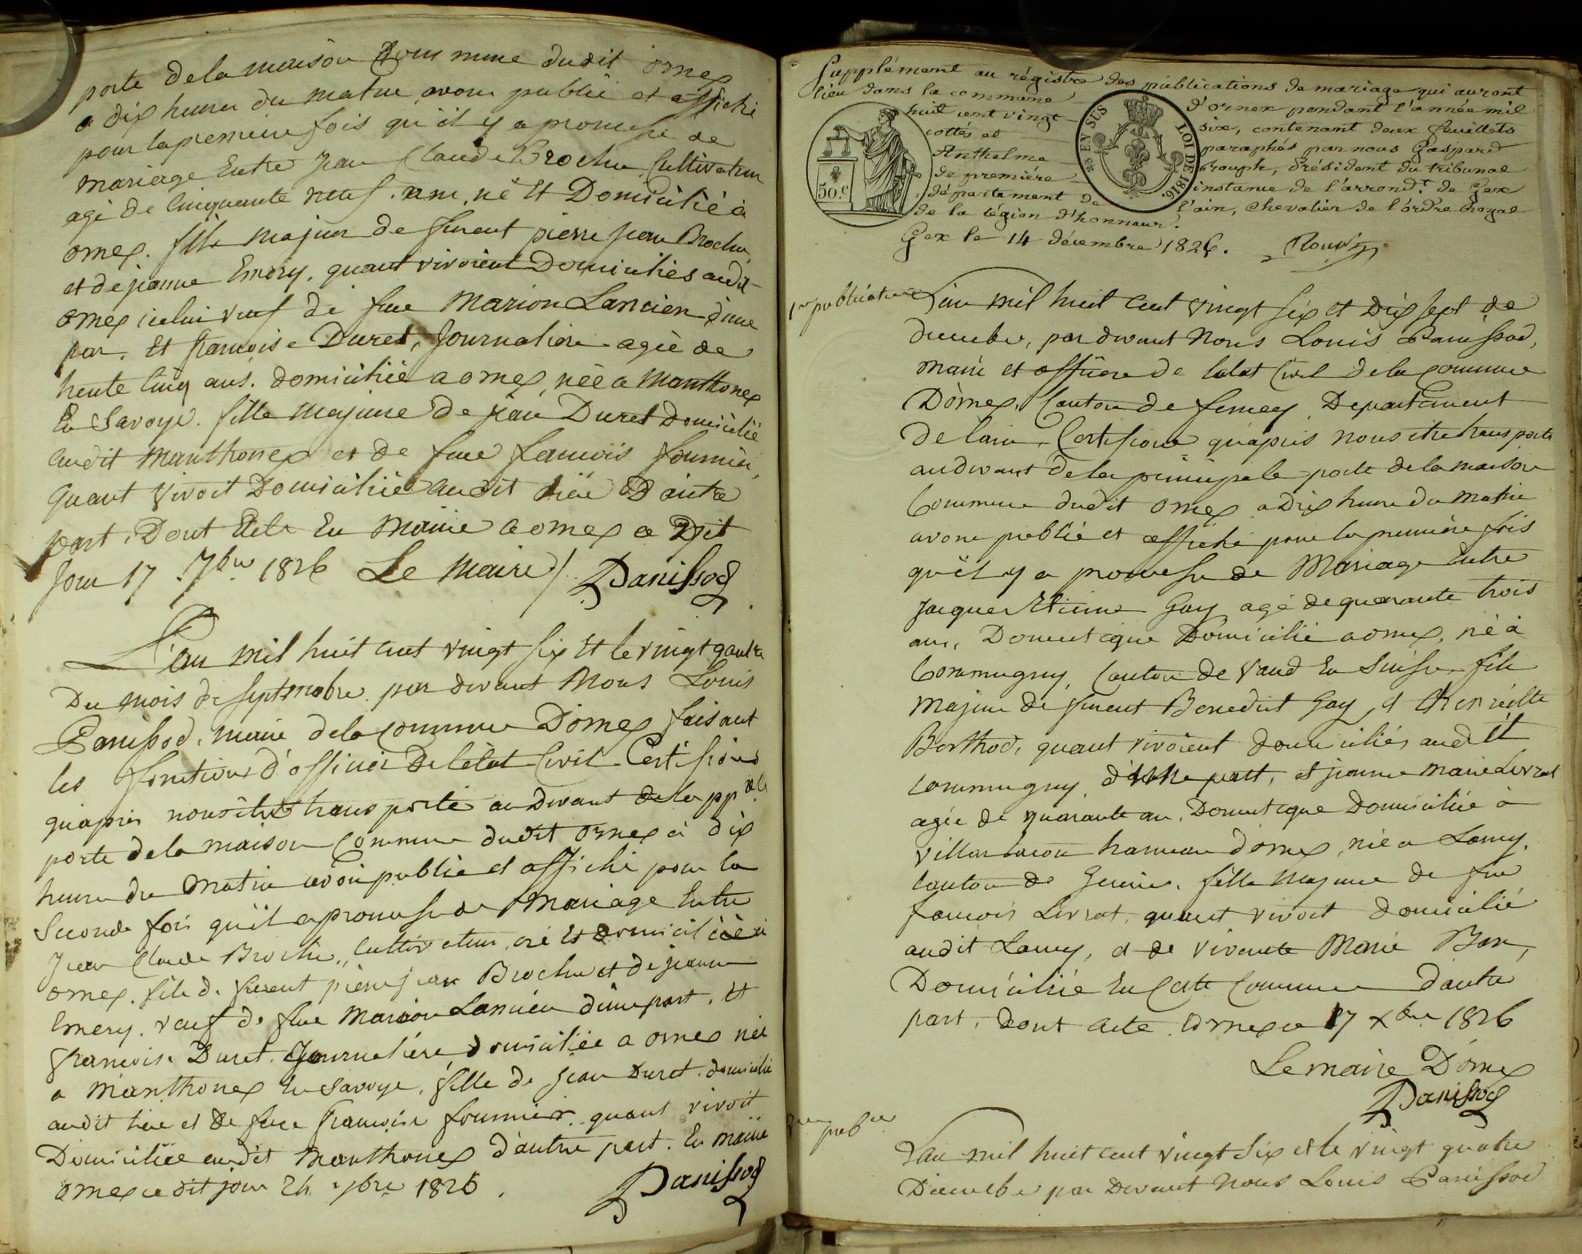 porte de la maison Commune dudit ornex
a dix heures du matin avons publié et affiché
pour la premiere fois qu'il y a promesse de
mariage Entre jean Claude Brochu, Cultivateur
agé de Cinquante neuf ans, né Et Domicilié à
ornex. fils majeur de furent pierre jean Brochu
et de jeanne Emery. quant vivoient Domiciliés audit
ornex icelui veuf de feue Marion Lancien d'une
par. Et francoise Duret, Journaliere agée de
trente Cinq ans. domiciliée a ornex, née a Manthonex
En Savoye. fille Majeure de jean Duret Domicilié
audit Manthonex et de feue francois fournier,
quant vivoit Domiciliée audit lieu D'autre
part, Dont Acte En Mairie a ornex ce Dit
Jour 17 7bre 1826 Le Maire / Panissod
L'an mil huit cent vingt six Et le vingt quatre
Du mois de septembre par devant Nous Louis
Panissod, maire de la Commune D'ornex faisant
les fonctions d'officier De l'état Civil Certifions
qu'après nous être transporté au Devant de la pple
porte de la maison Commune dudit ornex à dix
heures du Matin avons publié et affiché pour la
Seconde fois qu'il a promesse de Mariage Entre
Jean Claude Brochu, Cultivateur, né Et domicilié à
ornex. fils de furent pierre jean Brochu et de jeanne
Emery. veuf de feue Marion Lancien d'une part. Et
francoise Duret Journaliére, domiciliée a ornex née
a Manthonex En Savoye, fille de Jean Duret domicilié
audit lieu et de feue francoise fournier. quant vivoit
Domiciliée audit Manthonex d'autre part. En Mairie
ornex ce dit jour 24 7bre 1826. Panissod
Supplément au régistre des publications de mariage qui auront
lieu dans la commune d'ornex pendant l'année mil
huit cent vingt six, contenant deux feuillets
cottés et paraphés par nous Gaspard
Anthelme Rouph, Président du tribunal
de premiére instance de l'arrondt. de Gex
département de l'ain, Chevalier de l'ordre Royal
de la légion d'honneur.
Gex le 14 décembre 1826.
50.c
EN SUS
LOI DE 1816.
1ere publication L'an mil huit cent vingt six et Dix sept de
decembre, par devant Nous Louis Panissod,
maire et officier de l'état Civil de la Commune
D'ornex, Canton de ferney, Departement
De l'ain, Certifions qu'après nous etre transporté
au devant de la principale porte de la maison
Commune dudit ornex a Dix heure du Matin
avons publié et affiché pour la premiére fois
qu'il y a promesse de Mariage Entre
Jacques Etienne Gay agé de quarante trois
ans, Domestique Domicilié a ornex, né à
Commugny, Canton de Vaud En Suisse fils
majeur de furent Benedict Gay, et Henriette
Berthod, quant vivoient domiciliés audit
commugny. d'une part, et jeanne Marie Livrat
agée de quarante an, Domestique Domiciliée à
villard hameau d'ornex, née a Lancy,
Canton de Genève. fille Majeure de feu
francois Livrat, quant vivoit domicilié
audit Lancy, et de vivante Marie
Domiciliée En Cette Commune d'autre
part, dont acte. Ornex ce 17 Xbre 1826
Le maire D'ornex
Panissod
pubon
L'an mil huit cent vingt six et le vingt quatre
Decembre par Devant Nous Louis Panissod